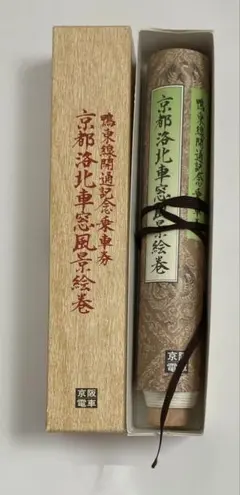 鴨東線開通記念乗車券
京都洛北車窓風景絵巻
京阪
電車
鴨東線開通記念乗車券
京都洛北車窓風景絵巻
京阪
電車